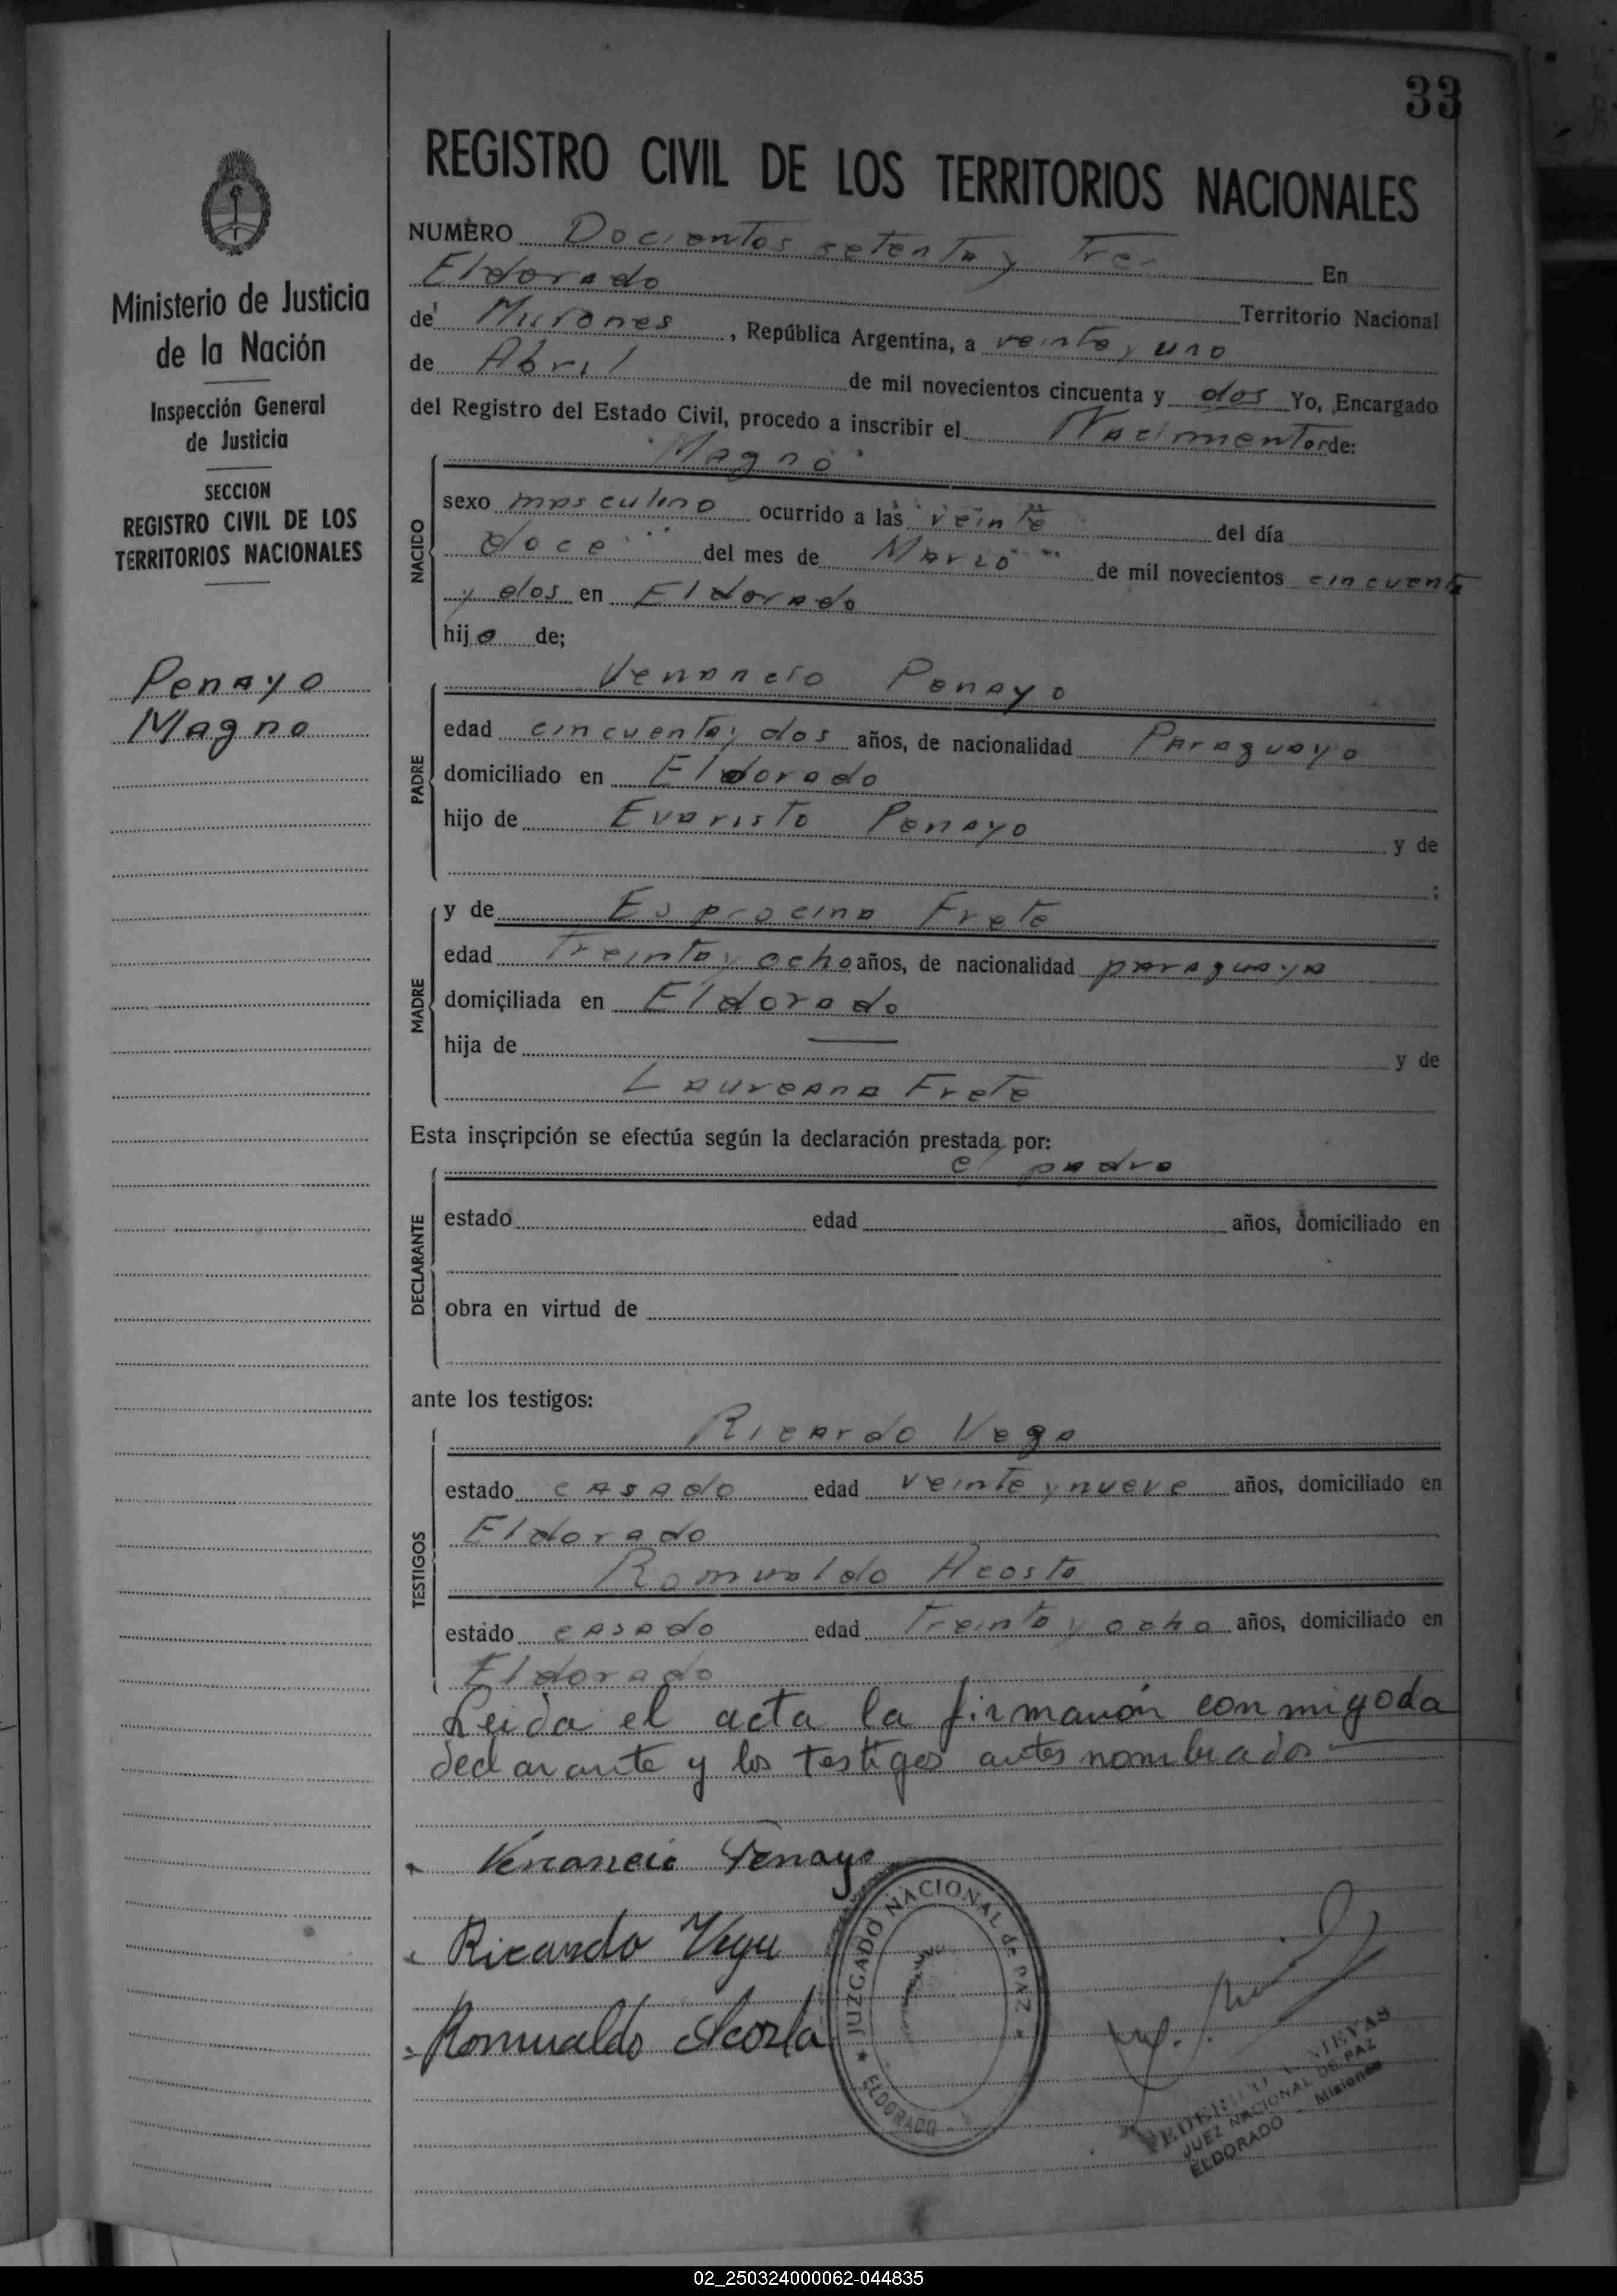 33
REGISTRO CIVIL DE LOS TERRITORIOS NACIONALES
Ministerio de Justicia
de la Nación
Inspección General
de Justicia
SECCION
REGISTRO CIVIL DE LOS
TERRITORIOS NACIONALES
Penayo
Magno
NUMERO Docientos setenta y Tres En
Eldorado Territorio Nacional
de Misiones, República Argentina, a veinte y uno
de Abril de mil novecientos cincuenta y dos Yo, Encargado
del Registro del Estado Civil, procedo a inscribir el Nacimiento de:
NACIDO
"Magno"
sexo masculino ocurrido a las veinte del día
doce del mes de Marzo de mil novecientos cincuenta
y dos en Eldorado
hijo de;
PADRE
Venancio Penayo
edad cincuenta y dos años, de nacionalidad Paraguayo
domiciliado en Eldorado
hijo de Evaristo Penayo y de
;
MADRE
y de Esprocina Frete
edad Treinta y ocho años, de nacionalidad paraguaya
domiciliada en Eldorado
hija de — y de
Laureana Frete
Esta inscripción se efectúa según la declaración prestada por:
DECLARANTE
el padre
estado edad años, domiciliado en
obra en virtud de
ante los testigos:
TESTIGOS
Ricardo Vega
estado casado edad veinte y nueve años, domiciliado en
Eldorado
Romualdo Acosta
estado casado edad Treinta y ocho años, domiciliado en
Eldorado
Leida el acta la firmaron conmigo da
declarante y los testigos antes nombrados
Venancio Penayo
Ricardo Vega
Romualdo Acosta
JUZGADO NACIONAL de PAZ
ELDORADO
NIEVAS
JUEZ NACIONAL DE PAZ
ELDORADO - Misiones
02_250324000062-044835